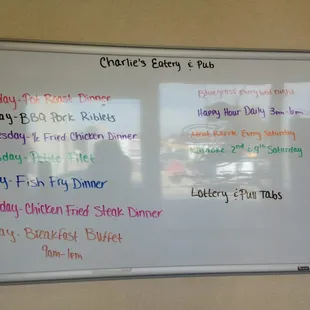 Charlie's Eatery & Pub
day - Pot Roast Dinner
ay - BBQ Pork Riblets
esday - ½ Fried Chicken Dinner
sday - Filet
ay - Fish Fry Dinner
day - Chicken Fried Steak Dinner
ay - Breakfast Buffet
9am - 1pm
Bluegrass every
Happy Hour Daily 3pm - 6pm
Meat Raffle Every Saturday
2nd & 4th Saturday
Lottery & Pull Tabs